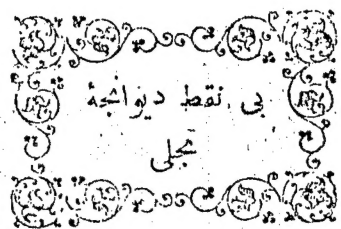 بى نقط ديوانچهٔ
تجلى